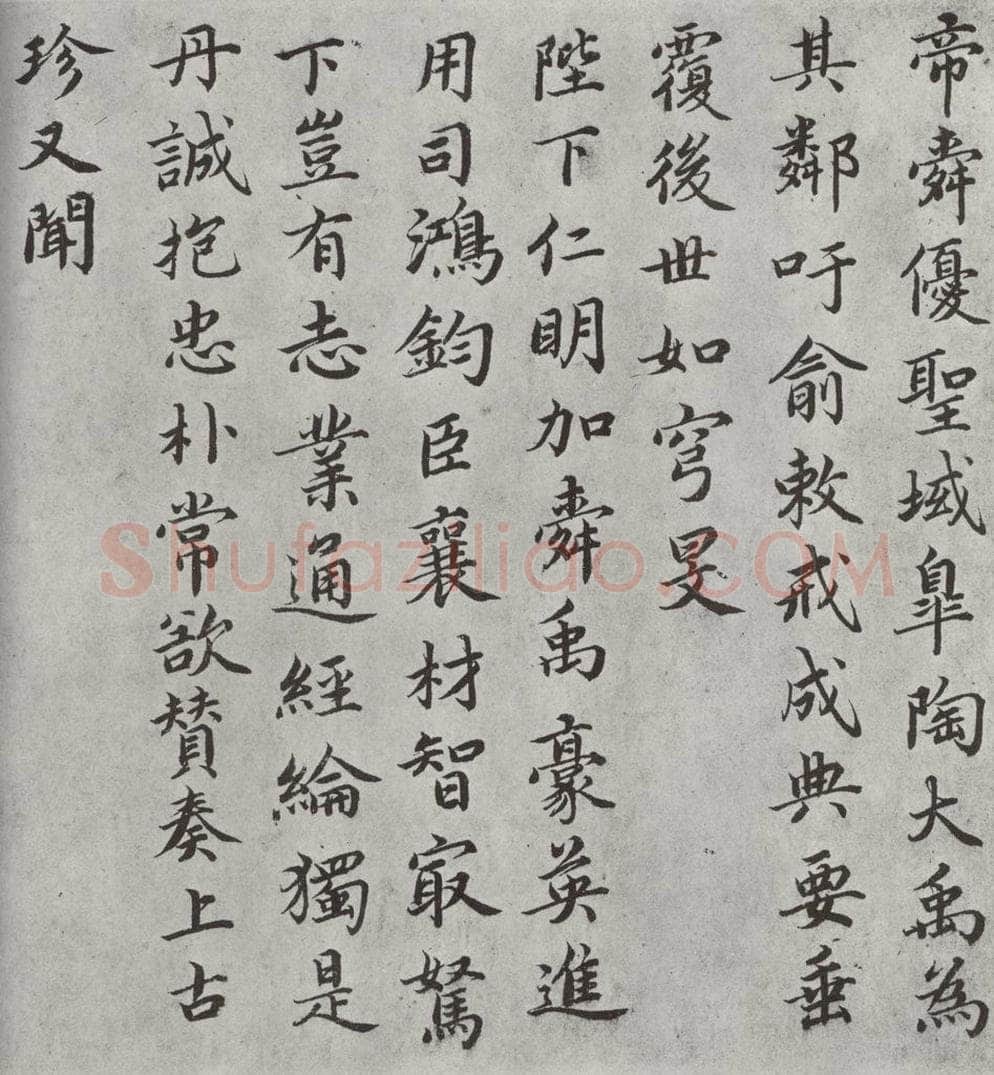 帝舜優聖域皐陶大禹為
其鄰吁俞敕戒成典要垂
覆後世如穹旻
陛下仁明加舜禹豪英進
用司鴻鈞臣襄材智㝡駑
下豈有志業通經綸獨是
丹誠抱忠朴常欲賛奏上古
珍又聞
Shufaziliao.COM